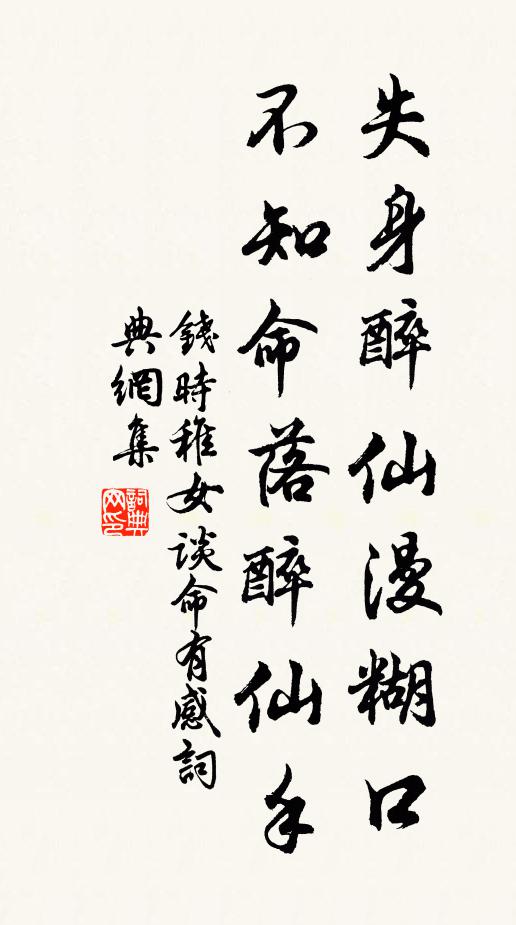 失身醉仙漫糊口
不知命落醉仙手
錢時稚女談命有感詞
典網集
詞典
网印